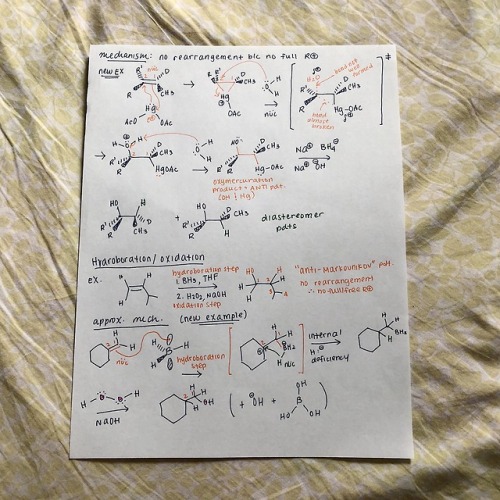 mechanism: no rearrangement b/c no full R⊕
new ex
R' R D CH₃ nuc
Hg
AcO OAc
Hg⊕ OAc
nuc
bond not well formed
Hg-OAc
bond almost broken
‡
H HgOAc
HO D CH₃ Hg-OAc
Na⊕ BH₄⊖
Na⊕ ⊖OH
oxymercuration
product = ANTI pdt.
(OH & Hg)
HO H R' R D CH₃ + HO D CH₃ R' R H diastereomer
pdts
Hydroboration/oxidation
ex. hydroboration step
1. BH₃, THF
2. H₂O₂, NaOH
oxidation step
"anti-Markovnikov" pdt.
no rearrangement
∴ no full/free R⊕
approx. mech. (new example)
nuc
hydroboration
step
BH₂
nuc
internal
H⊖
deficiency
BH₂
NaOH
OH
( + ⊖OH + HO B OH OH )